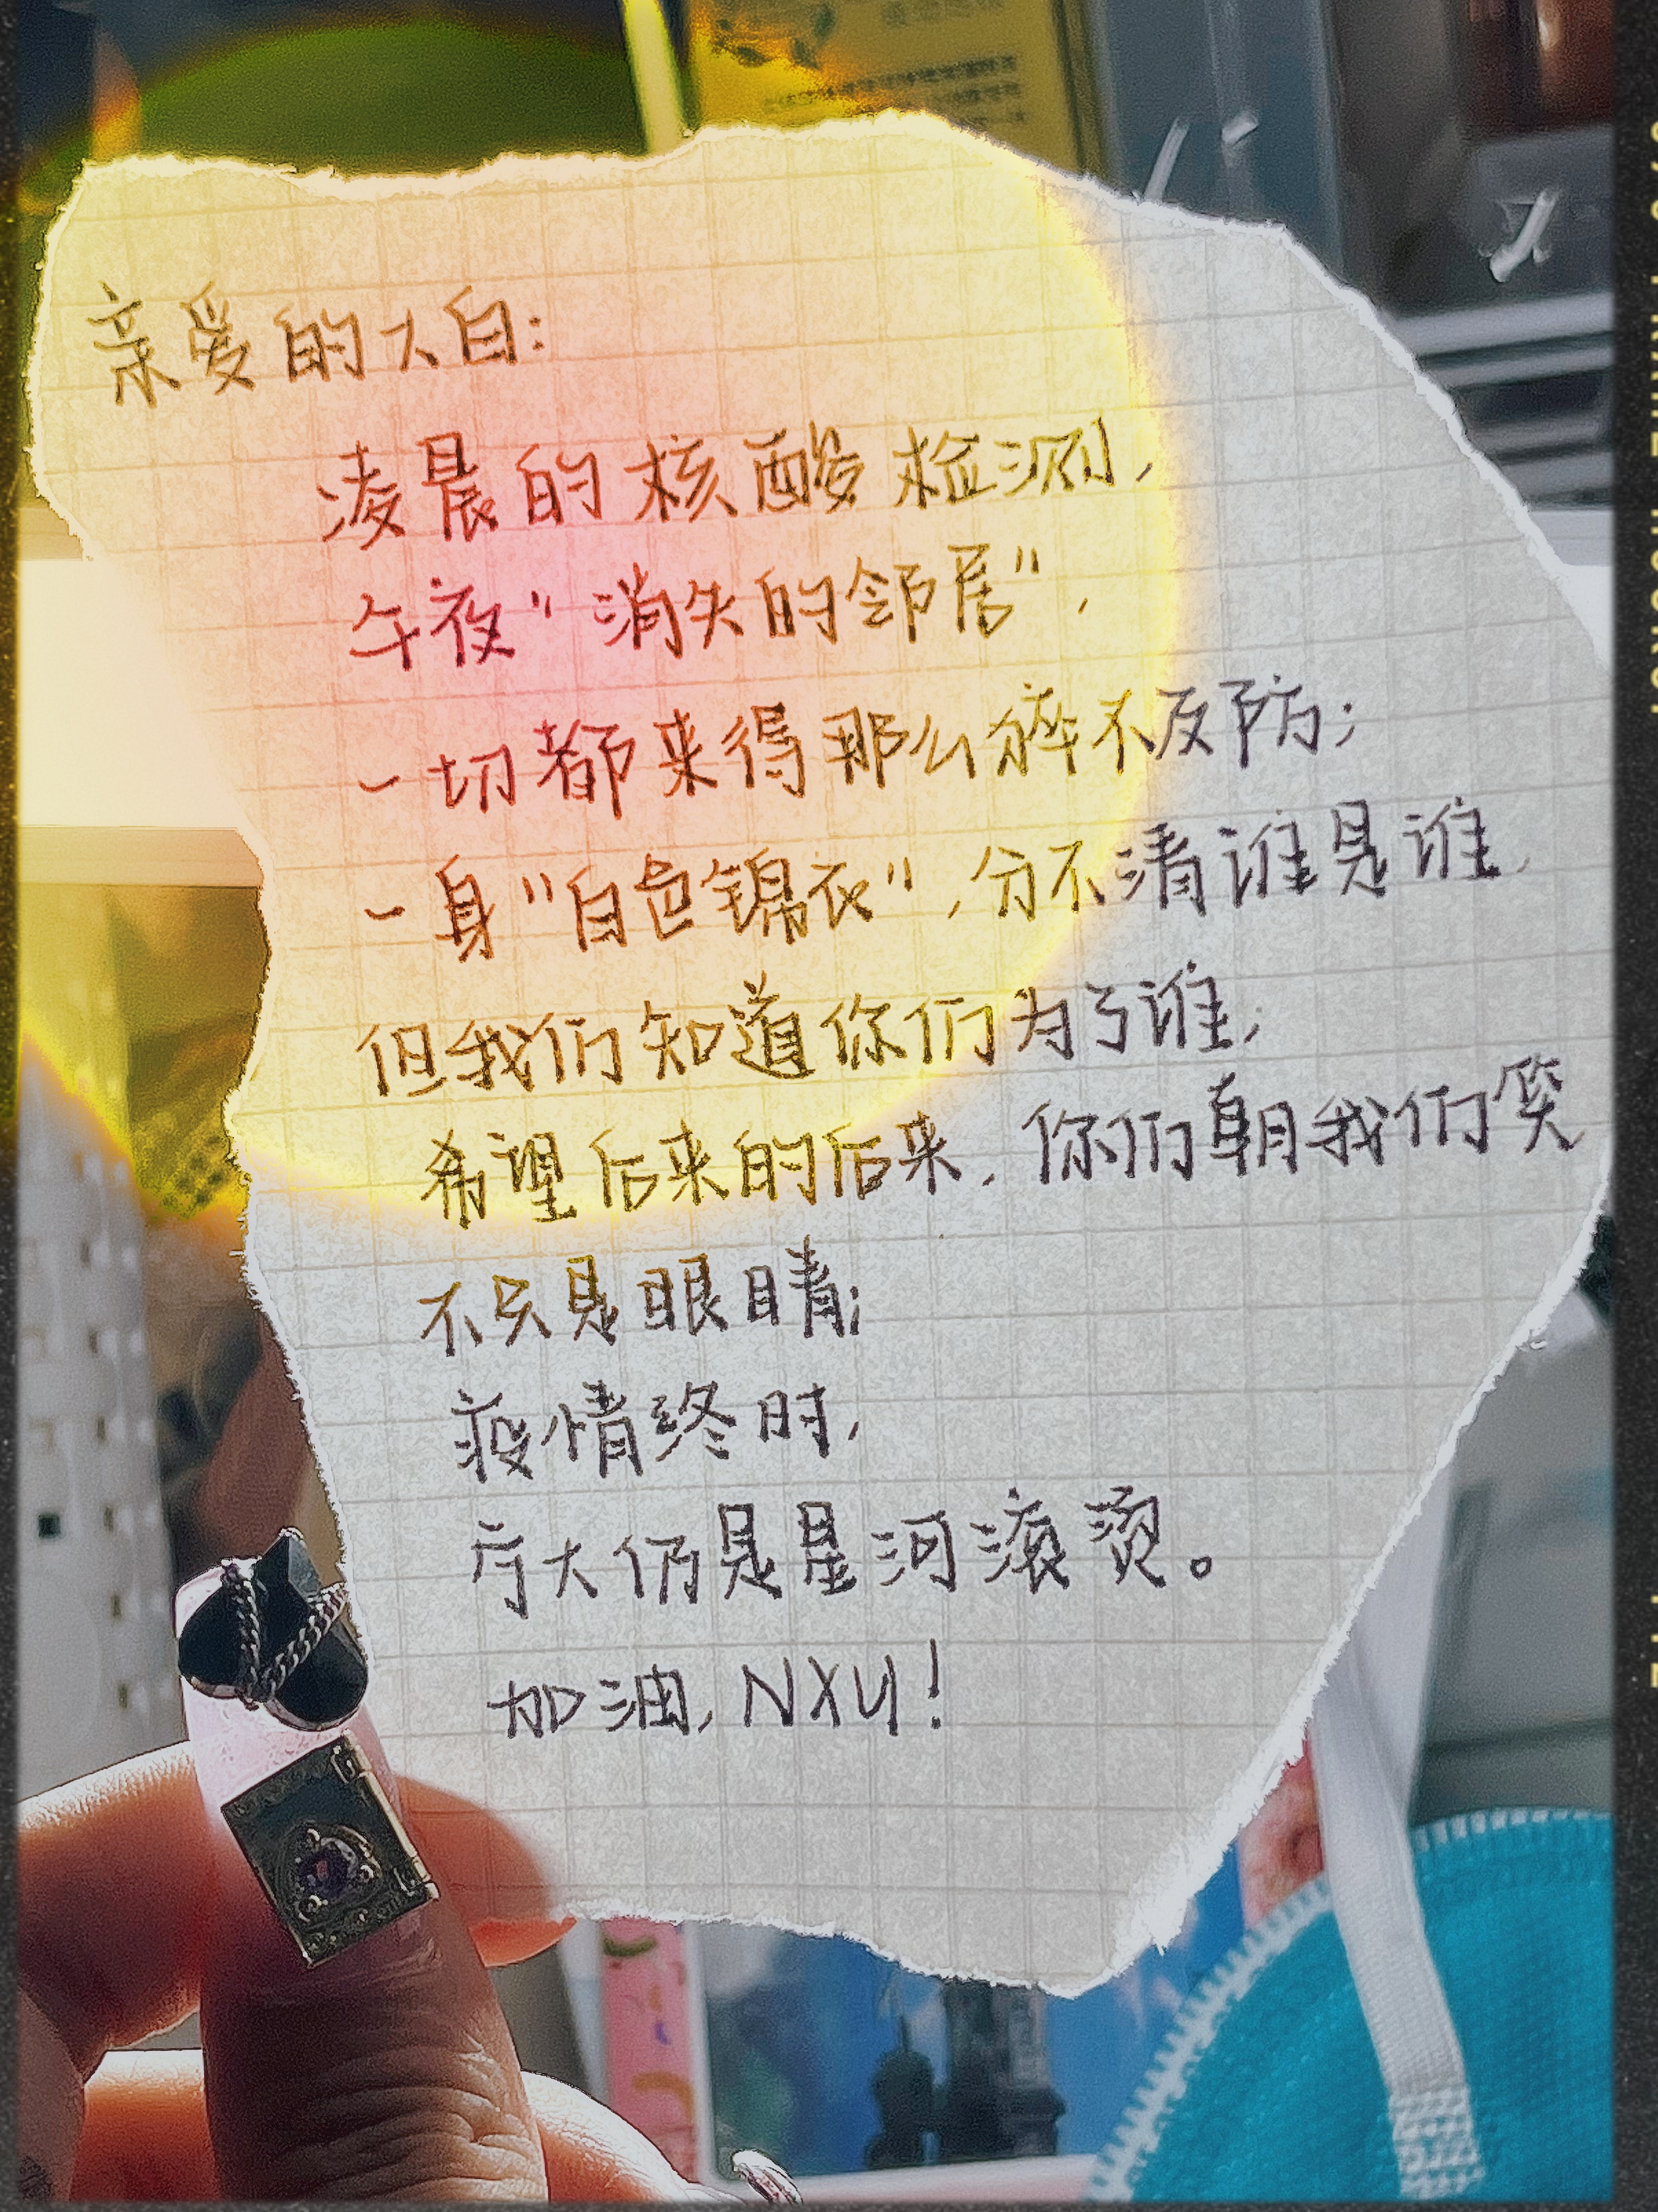 亲爱的大白：
凌晨的核酸检测，
午夜"消失的邻居"，
一切都来得那么猝不及防；
一身"白色锦衣"，分不清谁是谁，
但我们知道你们为了谁；
希望后来的后来，你们朝我们笑
不只是眼睛；
疫情终时，
宁大仍是星河滚烫。
加油，NXU！